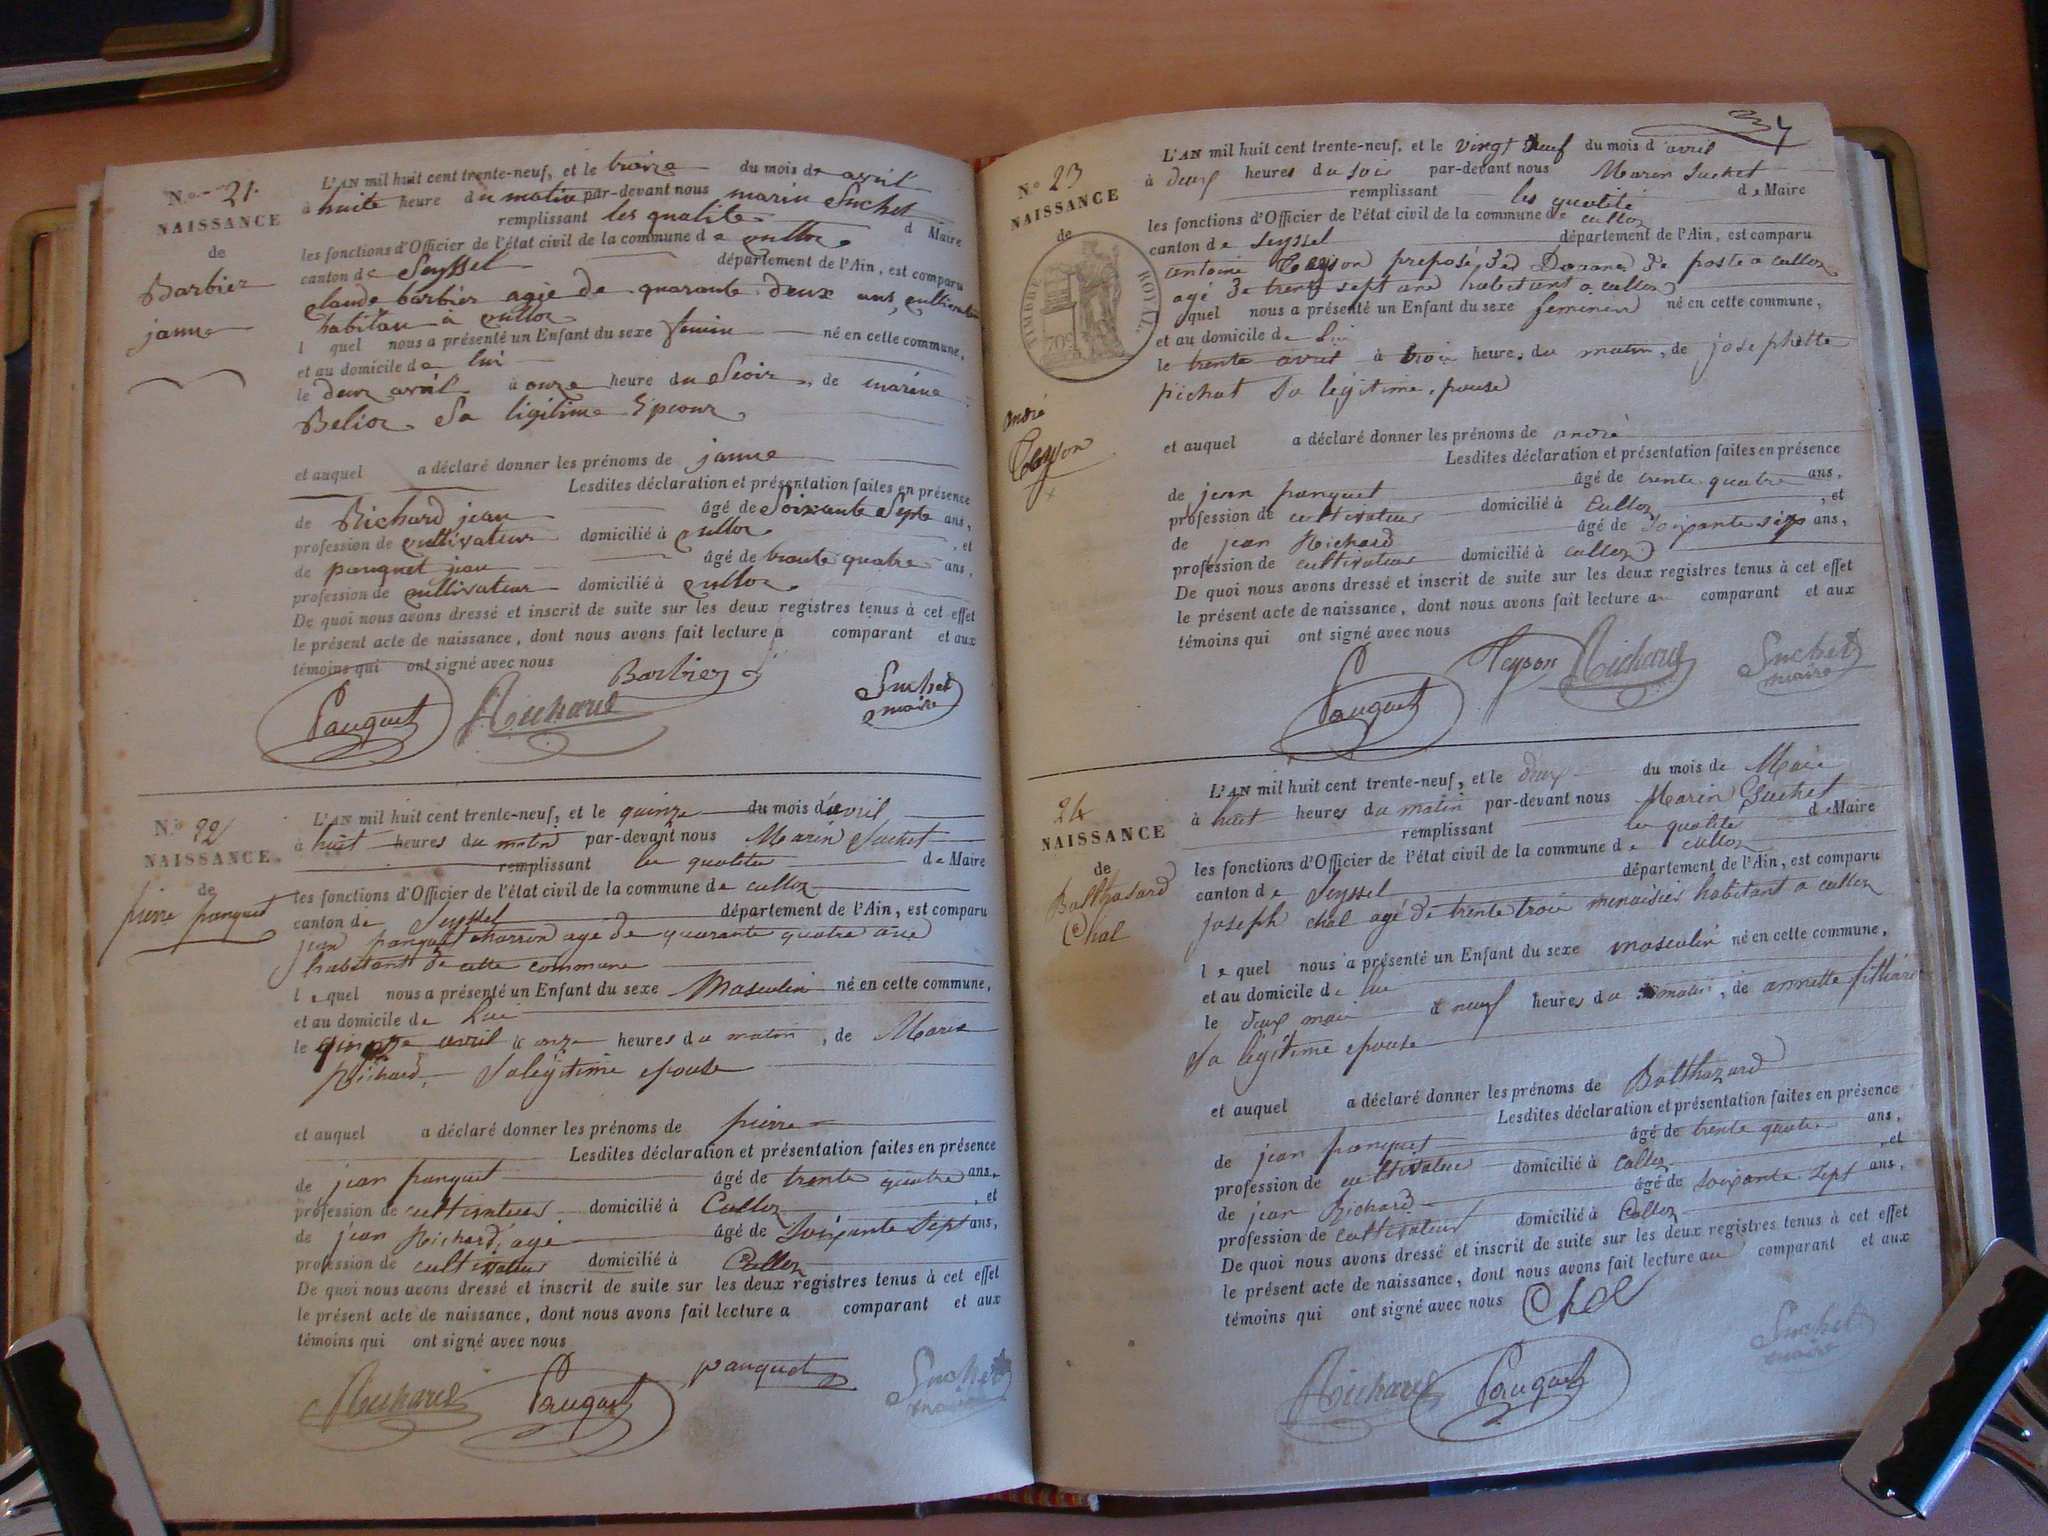 N.° 21.
NAISSANCE
de
Barbier
janne
L'AN mil huit cent trente-neuf, et le troize du mois de avril
à huite heure du matin par-devant nous marin Suchet
remplissant les qualite de Maire
les fonctions d'Officier de l'état civil de la commune de culloz
canton de Seyssel département de l'Ain, est comparu
Claude barbier agée de quarante deux ans, cultivateur
habitan à culloz
l quel nous a présenté un Enfant du sexe femin né en cette commune,
et au domicile de lui
le deux avril à onze heure du Seoir, de
Belioz Sa ligitime Epouz
et auquel a déclaré donner les prénoms de janne
Lesdites déclaration et présentation faites en présence
de Richard jean âgé de Soixante Sept ans,
profession de cultivateur domicilié à culloz, et
de pauquet jean âgé de trante quatre ans,
profession de cultivateur domicilié à culloz
De quoi nous avons dressé et inscrit de suite sur les deux registres tenus à cet effet
le présent acte de naissance, dont nous avons fait lecture a comparant et aux
témoins qui ont signé avec nous
Barbier
Pauquet Richard Suchet
maire
N.° 22
NAISSANCE
de
pierre pauquet
L'AN mil huit cent trente-neuf, et le quinze du mois d'avril
à huit heures du matin par-devant nous Marin Suchet
remplissant les qualites de Maire
les fonctions d'Officier de l'état civil de la commune de culloz
canton de Seyssel département de l'Ain, est comparu
jean pauquet charron agé de quarante quatre ans
habitant de cette commune
l e quel nous a présenté un Enfant du sexe Masculin né en cette commune,
et au domicile de Lui
le quinze avril à onze heures du matin, de Marie
Richard, Sa légitime epouse
et auquel a déclaré donner les prénoms de pierre
Lesdites déclaration et présentation faites en présence
de jean pauquet âgé de trente quatre ans,
profession de cultivateur domicilié à Culloz, et
de jean Richard, agé âgé de Soixante Sept ans,
profession de cultivateur domicilié à Culloz
De quoi nous avons dressé et inscrit de suite sur les deux registres tenus à cet effet
le présent acte de naissance, dont nous avons fait lecture a comparant et aux
témoins qui ont signé avec nous
Richard Pauquet pauquet Suchet
maire
7
N.° 23
NAISSANCE
de
TIMBRE ROYAL
andré
L'AN mil huit cent trente-neuf, et le vingt neuf du mois d'avril
à deux heures du soir par-devant nous Marin Suchet
remplissant les qualité de Maire
les fonctions d'Officier de l'état civil de la commune de culloz
canton de Seyssel département de l'Ain, est comparu
antoine preposé des Douanes de poste a culloz
agé de trente sept ans habitant a culloz
quel nous a présenté un Enfant du sexe feminin né en cette commune,
et au domicile de Lui
le trente avril à trois heures du matin, de josephette
pichat Sa légitime epouse
et auquel a déclaré donner les prénoms de andré
Lesdites déclaration et présentation faites en présence
de jean pauquet âgé de trente quatre ans,
profession de cultivateur domicilié à Culloz, et
de jean Richard âgé de Soixante sept ans,
profession de cultivateur domicilié à culloz
De quoi nous avons dressé et inscrit de suite sur les deux registres tenus à cet effet
le présent acte de naissance, dont nous avons fait lecture au comparant et aux
témoins qui ont signé avec nous
Pauquet Richard Suchet
maire
24
NAISSANCE
de
Balthasard
Chal
L'AN mil huit cent trente-neuf, et le deux du mois de Mai
à huit heures du matin par-devant nous Marin Suchet
remplissant les qualité de Maire
les fonctions d'Officier de l'état civil de la commune de culloz
canton de Seyssel département de l'Ain, est comparu
joseph chal agé de trente trois menuisier habitant a culloz
l e quel nous a présenté un Enfant du sexe masculin né en cette commune,
et au domicile de lui
le deux mai à neuf heures du matin, de annette
Sa légitime epouse
et auquel a déclaré donner les prénoms de Balthazard
Lesdites déclaration et présentation faites en présence
de jean pauquet âgé de trente quatre ans,
profession de cultivateur domicilié à Culloz, et
de jean Richard âgé de soixante sept ans,
profession de cultivateur domicilié à Culloz
De quoi nous avons dressé et inscrit de suite sur les deux registres tenus à cet effet
le présent acte de naissance, dont nous avons fait lecture au comparant et aux
témoins qui ont signé avec nous Chal
Richard Pauquet Suchet
maire